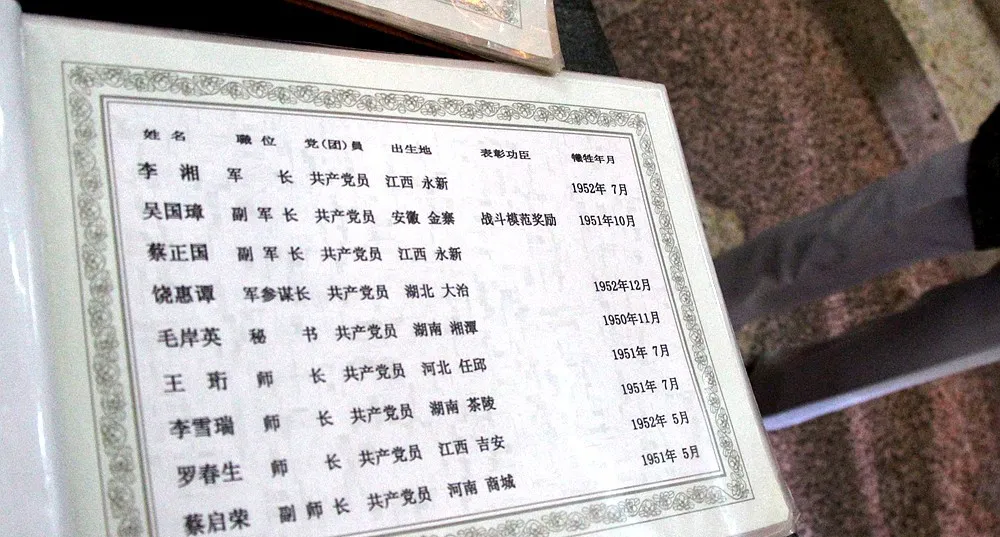 姓名 職位 党(团)員 出生地 表彰功臣 犠牲年月
李湘 军长 共产党员 江西 永新 1952年 7月
吴国璋 副军长 共产党员 安徽 金寨 战斗模范奖励 1951年10月
蔡正国 副军长 共产党员 江西 永新
饶惠谭 军参谋长 共产党员 湖北 大治 1952年12月
毛岸英 秘书 共产党员 湖南 湘潭 1950年11月
王珩 师长 共产党员 河北 任邱 1951年 7月
李雪瑞 师长 共产党员 湖南 茶陵 1951年 7月
罗春生 师长 共产党员 江西 吉安 1952年 5月
蔡启荣 副师长 共产党员 河南 商城 1951年 5月